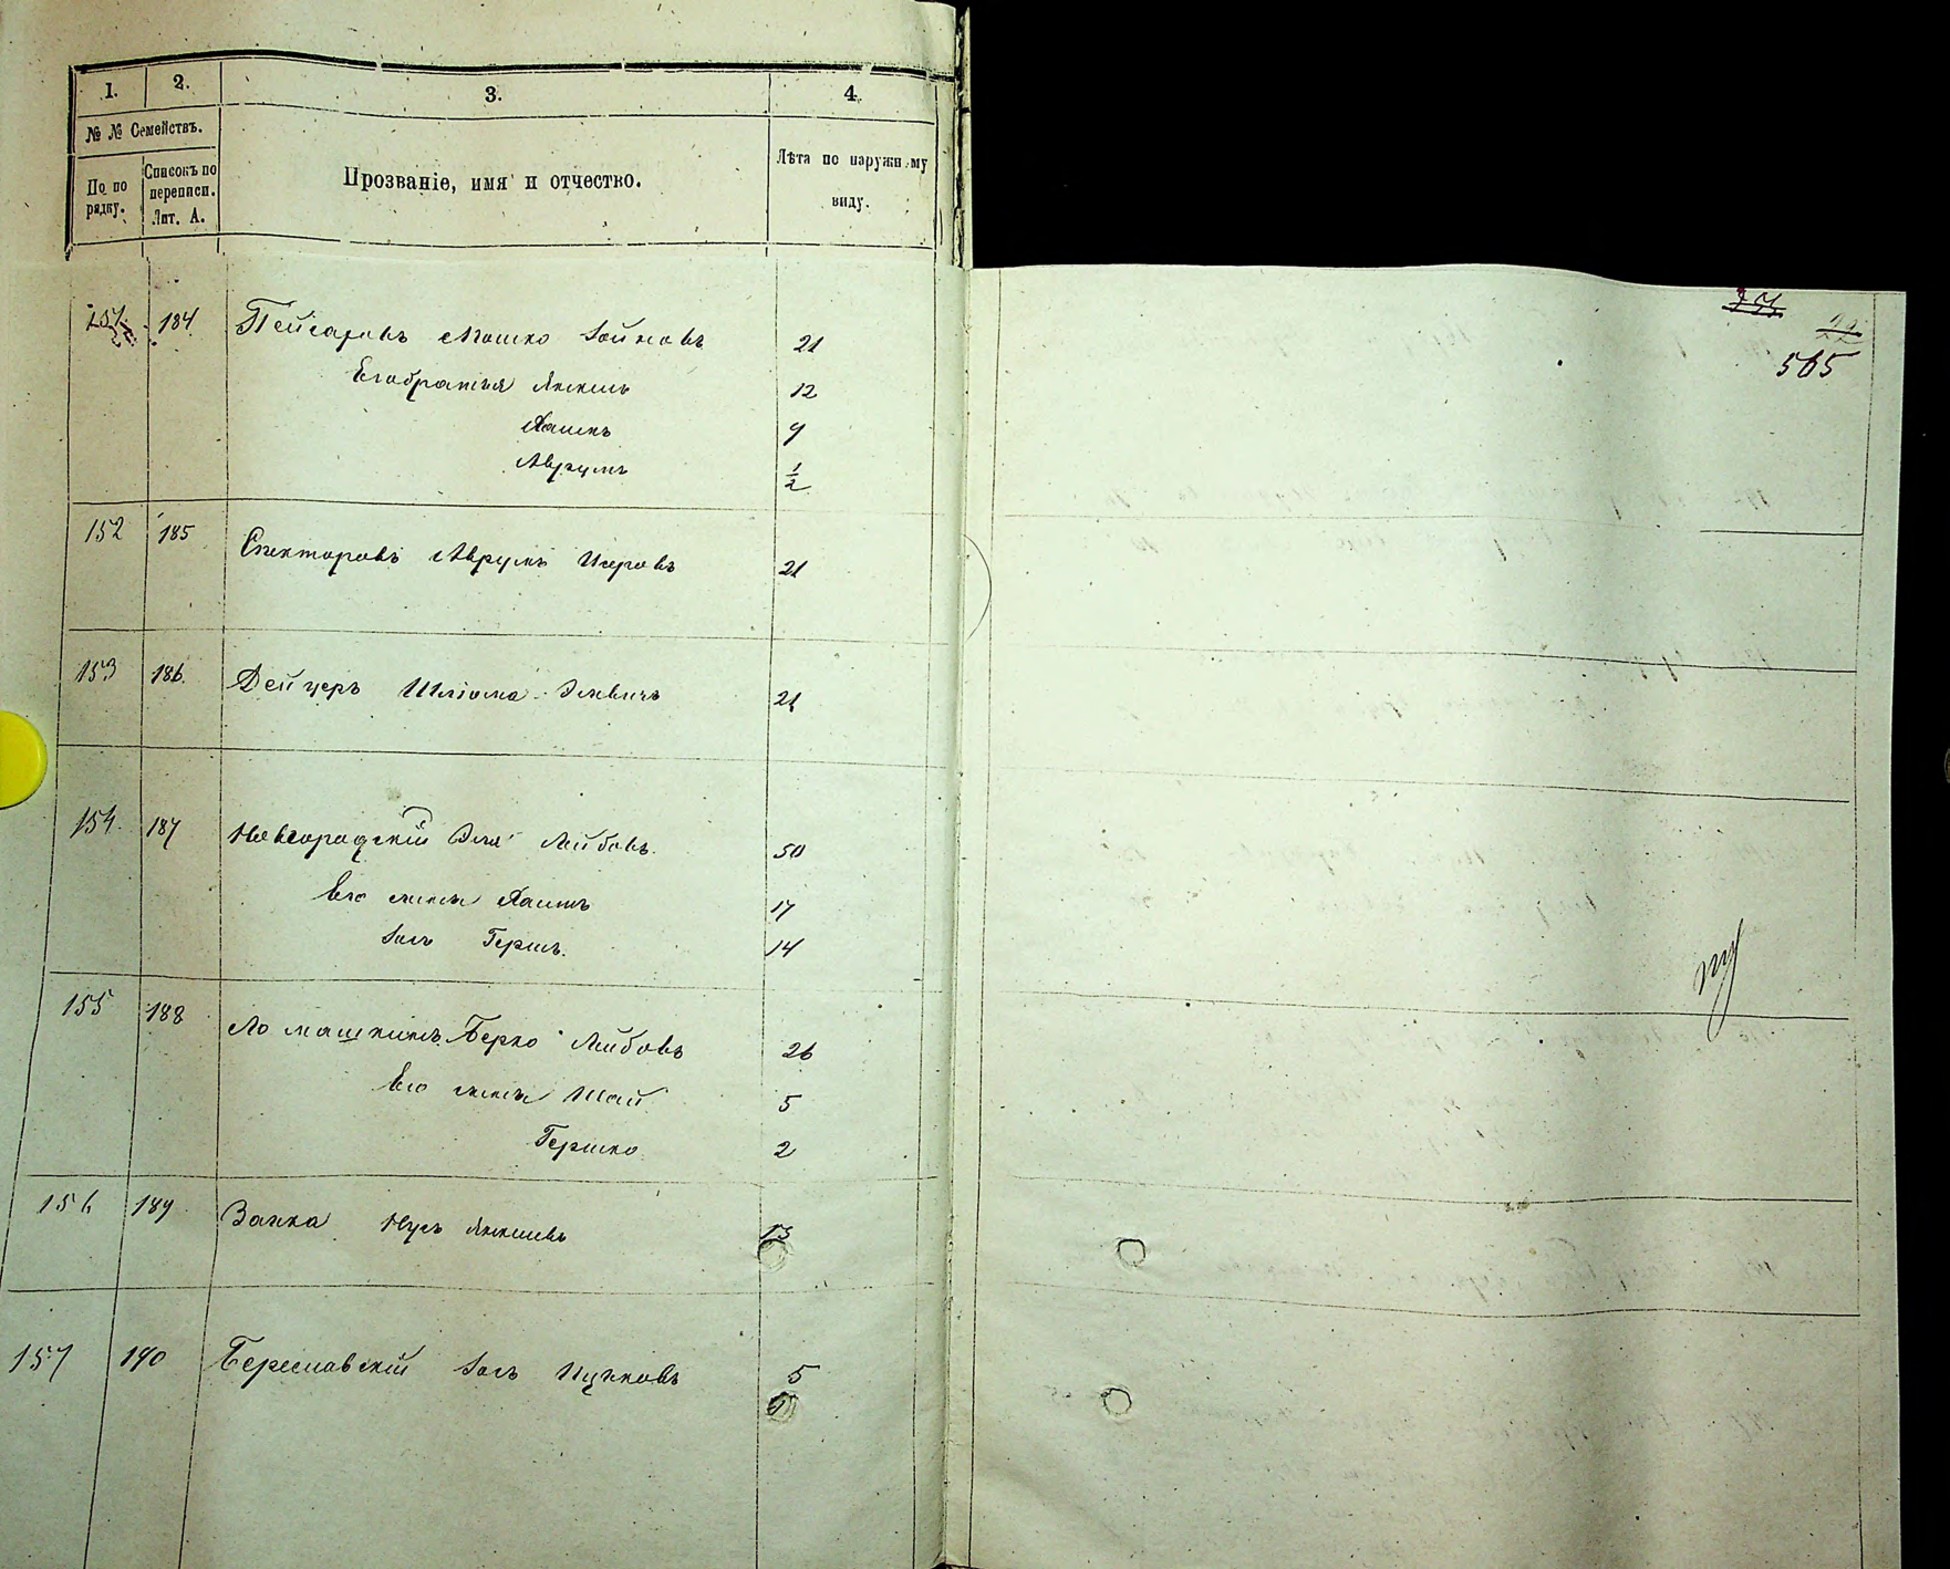 1. 2. 3. 4.
№ № Семействъ.
По по рядку. Списокъ по переписи. Лит. А. Прозваніе, имя и отчество. Лѣта по наружному виду.
505
151 184 Пейсаровъ Мошко Зойновъ 21
Его братья Янкель 12
Хаимъ 9
Аврумъ 1/2
152 185 Спекторовъ Аврумъ Иеровъ 21
153 186. Дейчеръ Шліома Элевичъ 21
154. 187 Новгородскій Эля Лейбовъ. 50
Его сынъ Хаимъ 17
Зась Гершъ. 14
155 188 Ломашкинъ Берко Лейбовъ 26
Его сынъ Шай 5
Гершко 2
156 189. Заика Нусъ Янкелевъ 13
157 190 Береславскій Зось Ицковъ 5